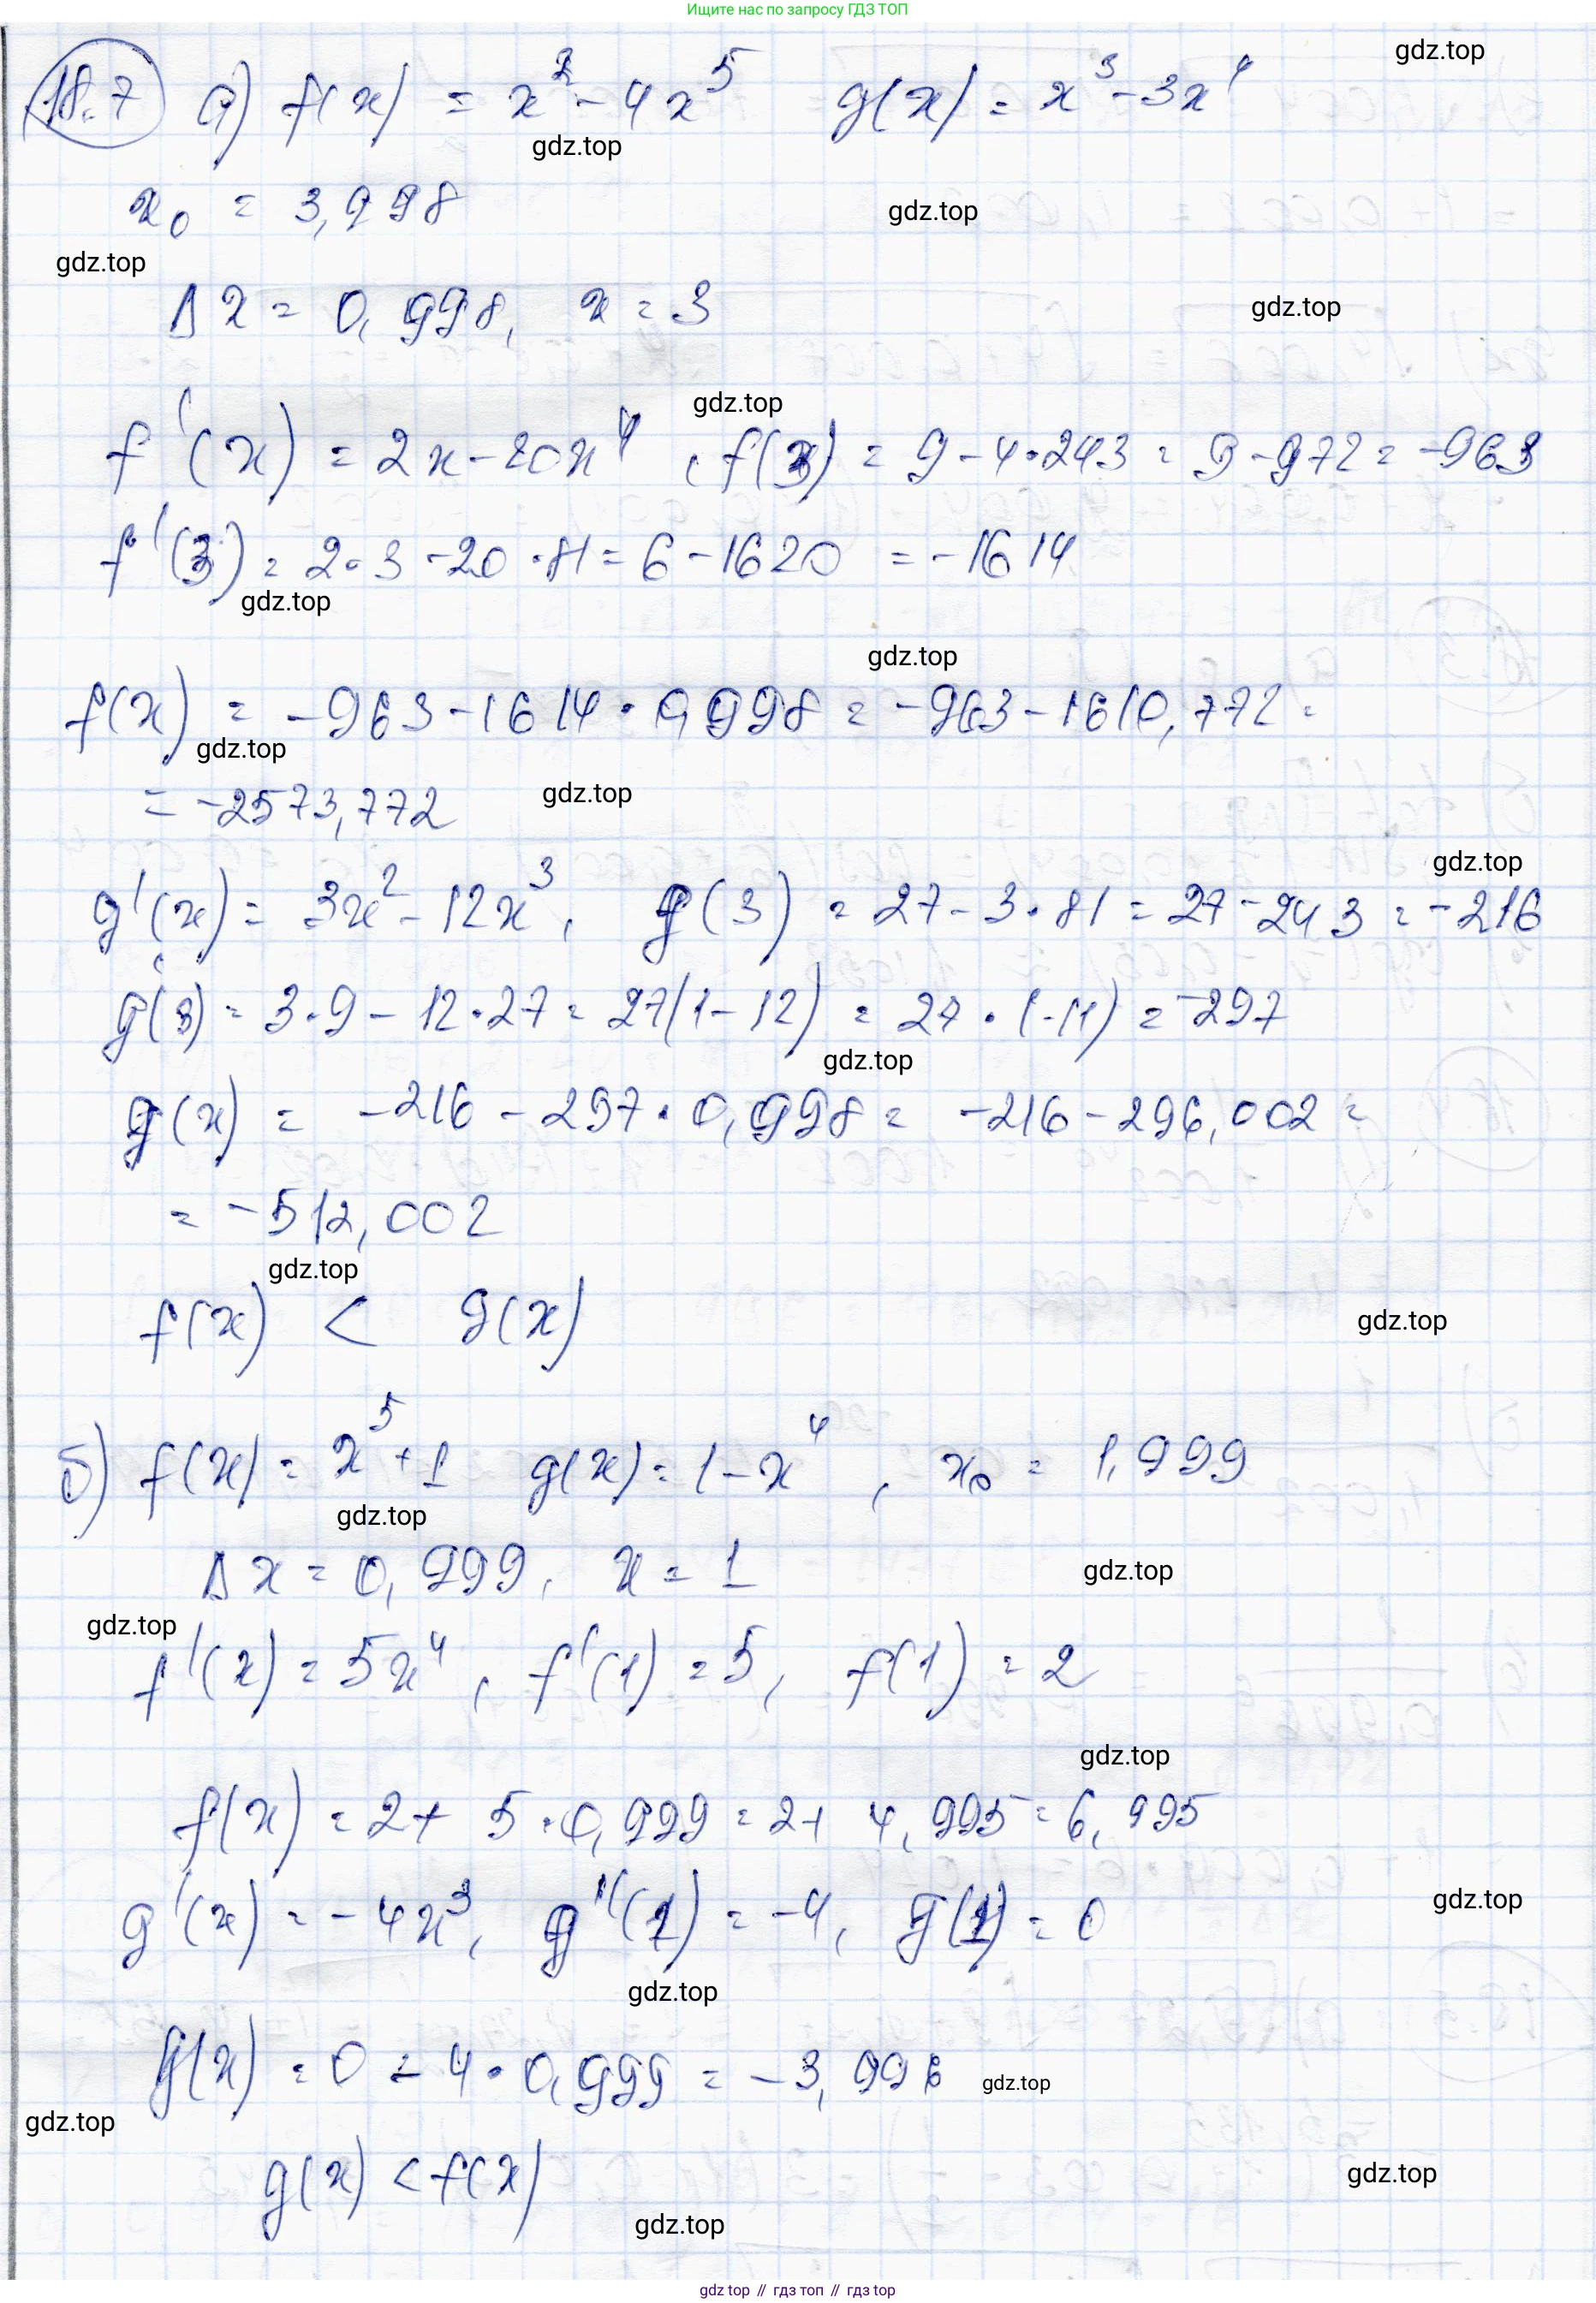 Ищите нас по запросу ГДЗ ТОП
gdz.top
18.7 а) f(x) = x² - 4x⁵ g(x) = x³ - 3x⁴
gdz.top
x₀ = 3,998
gdz.top
gdz.top
Δx = 0,998, x = 3
gdz.top
gdz.top
f'(x) = 2x - 20x⁴, f(3) = 9 - 4·243 = 9 - 972 = -963
f'(3) = 2·3 - 20·81 = 6 - 1620 = -1614
gdz.top
gdz.top
f(x) = -963 - 1614·0,998 = -963 - 1610,772 =
gdz.top
= -2573,772
gdz.top
gdz.top
g'(x) = 3x² - 12x³, g(3) = 27 - 3·81 = 27 - 243 = -216
g'(3) = 3·9 - 12·27 = 27(1 - 12) = 27·(-11) = -297
gdz.top
g(x) = -216 - 297·0,998 = -216 - 296,002 =
= -512,002
gdz.top
f(x) < g(x)
gdz.top
б) f(x) = x⁵ + 1 g(x) = 1 - x⁴, x₀ = 1,999
gdz.top
Δx = 0,999, x = 1
gdz.top
gdz.top
f'(x) = 5x⁴, f'(1) = 5, f(1) = 2
gdz.top
f(x) = 2 + 5·0,999 = 2 + 4,995 = 6,995
g'(x) = -4x³, g'(1) = -4, g(1) = 0
gdz.top
gdz.top
g(x) = 0 - 4·0,999 = -3,996
gdz.top
gdz.top
g(x) < f(x)
gdz.top
gdz.top
gdz top // гдз топ // гдз top